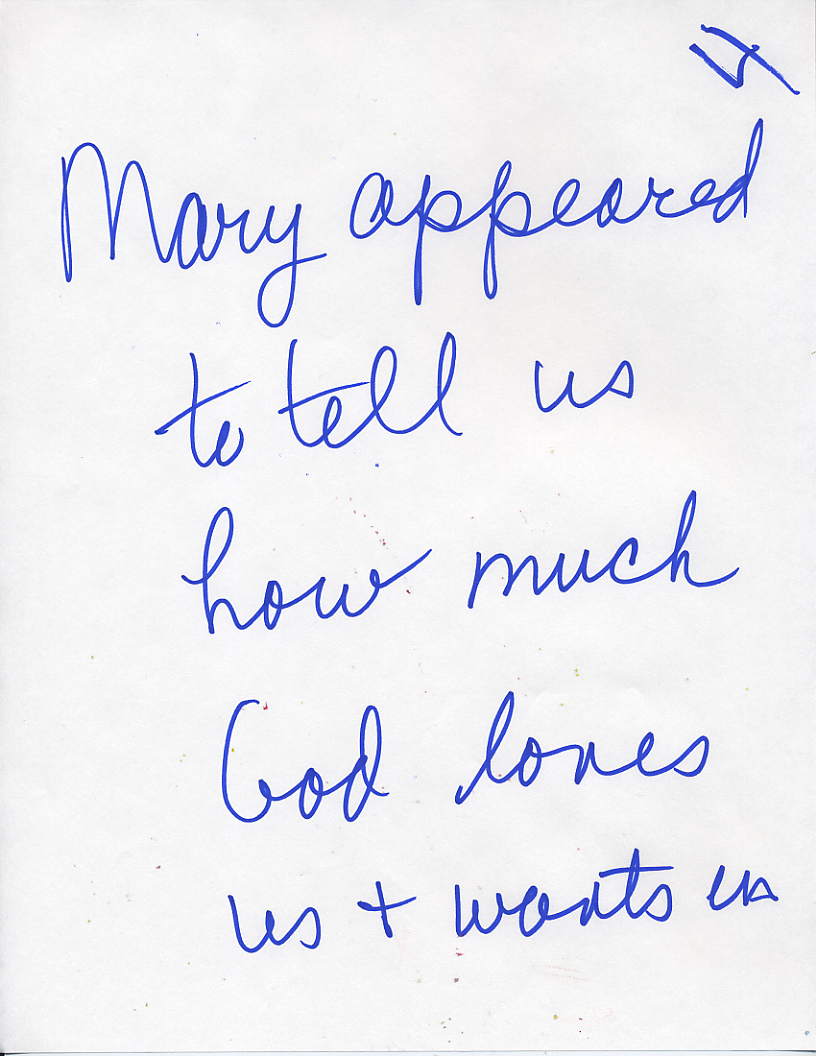 4
Mary appeared
to tell us
how much
God loves
us + wants us